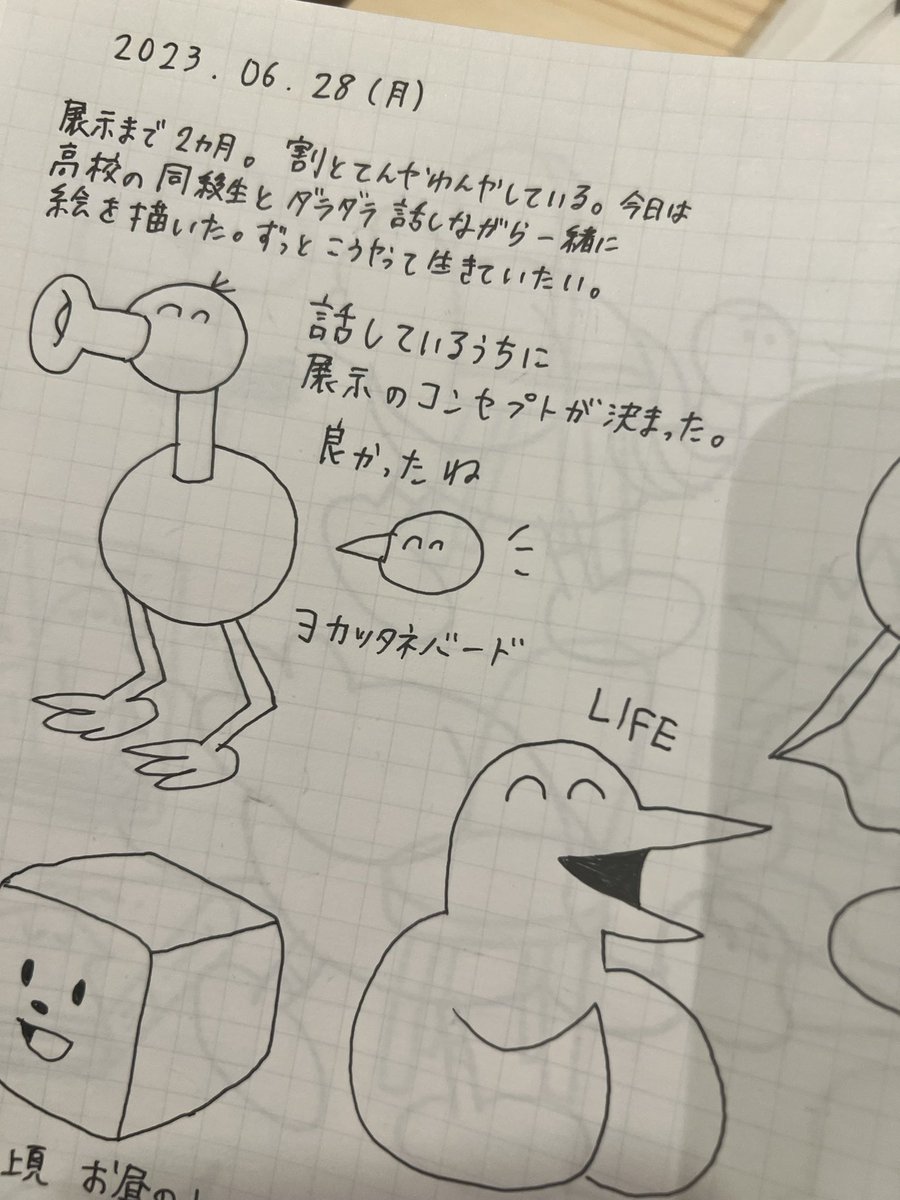 2023.06.28(月)
展示まで2カ月。割とてんやわんやしている。今日は
高校の同級生とダラダラ話しながら一緒に
絵を描いた。ずっとこうやって生きていたい。
話しているうちに
展示のコンセプトが決まった。
良かったね
ヨカッタネバード
LIFE
頃 お昼の